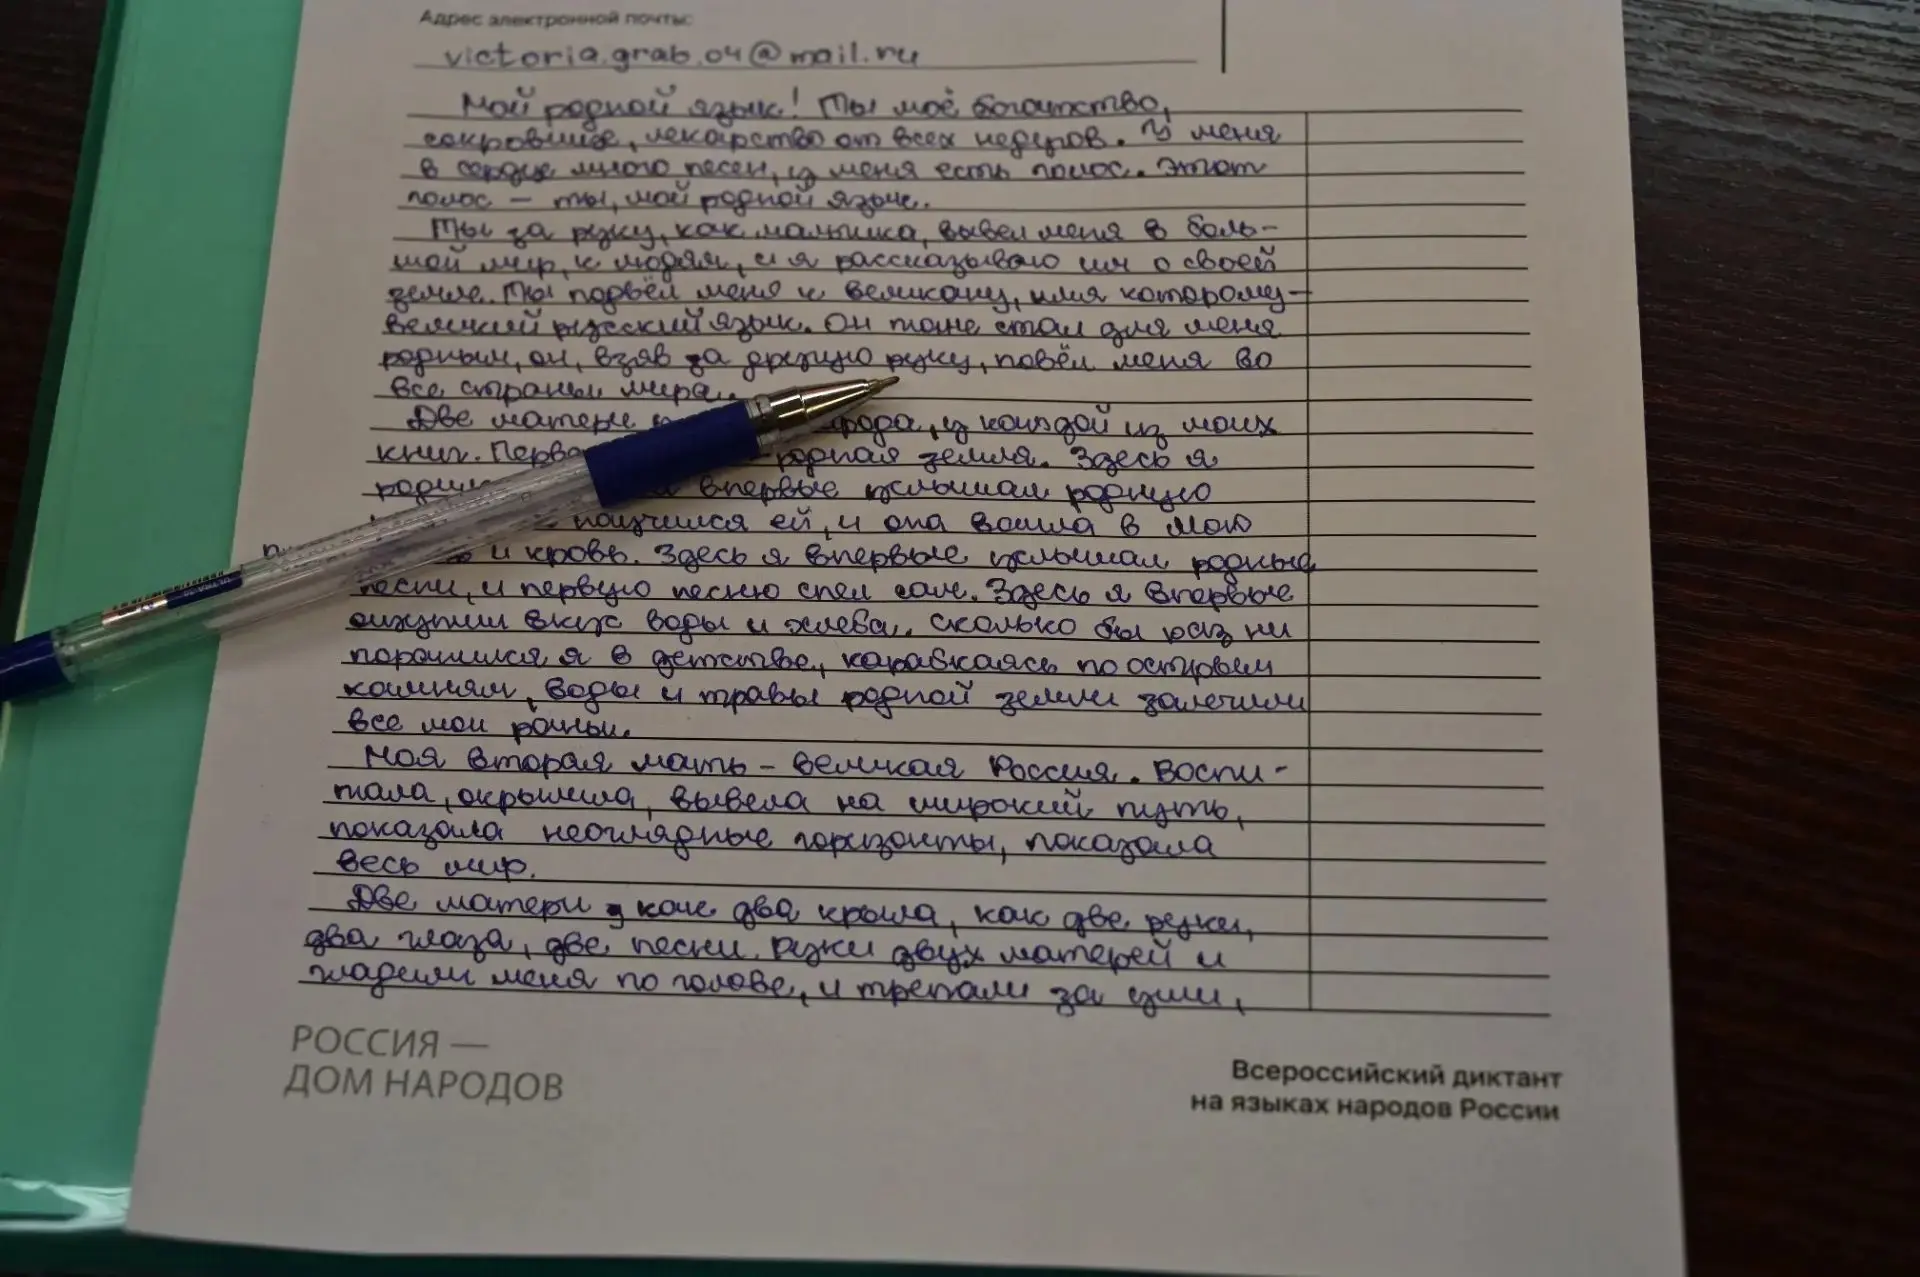 Адрес электронной почты:
victoria.grab.04@mail.ru
Мой родной язык! Ты моё богатство,
сокровище, лекарство от всех недугов. У меня
в сердце много песен, у меня есть голос. Этот
голос – ты, мой родной язык.
Ты за руку, как малыша, вывел меня в боль-
шой мир, к людям, и я рассказываю им о своей
земле. Ты подвёл меня к великану, имя которому –
великий русский язык. Он тоже стал для меня
родным, он, взяв за другую руку, повёл меня во
все страны мира.
Две матери у рода, у каждой из моих
книг. Перва родная земля. Здесь я
родил впервые услышал родную
научился ей, и она вошла в мою
и кровь. Здесь я впервые услышал родные
песни, и первую песню спел сам. Здесь я впервые
ощутил вкус воды и хлеба. Сколько бы раз ни
поранился я в детстве, карабкаясь по острым
камням, воды и травы родной земли залечили
все мои раны.
Моя вторая мать – великая Россия. Воспи-
тала, окрылила, вывела на широкий путь,
показала неоглядные горизонты, показала
весь мир.
Две матери, как два крыла, как две руки,
два глаза, две песни. Руки двух матерей и
гладили меня по голове, и трепали за уши,
РОССИЯ —
ДОМ НАРОДОВ
Всероссийский диктант
на языках народов России